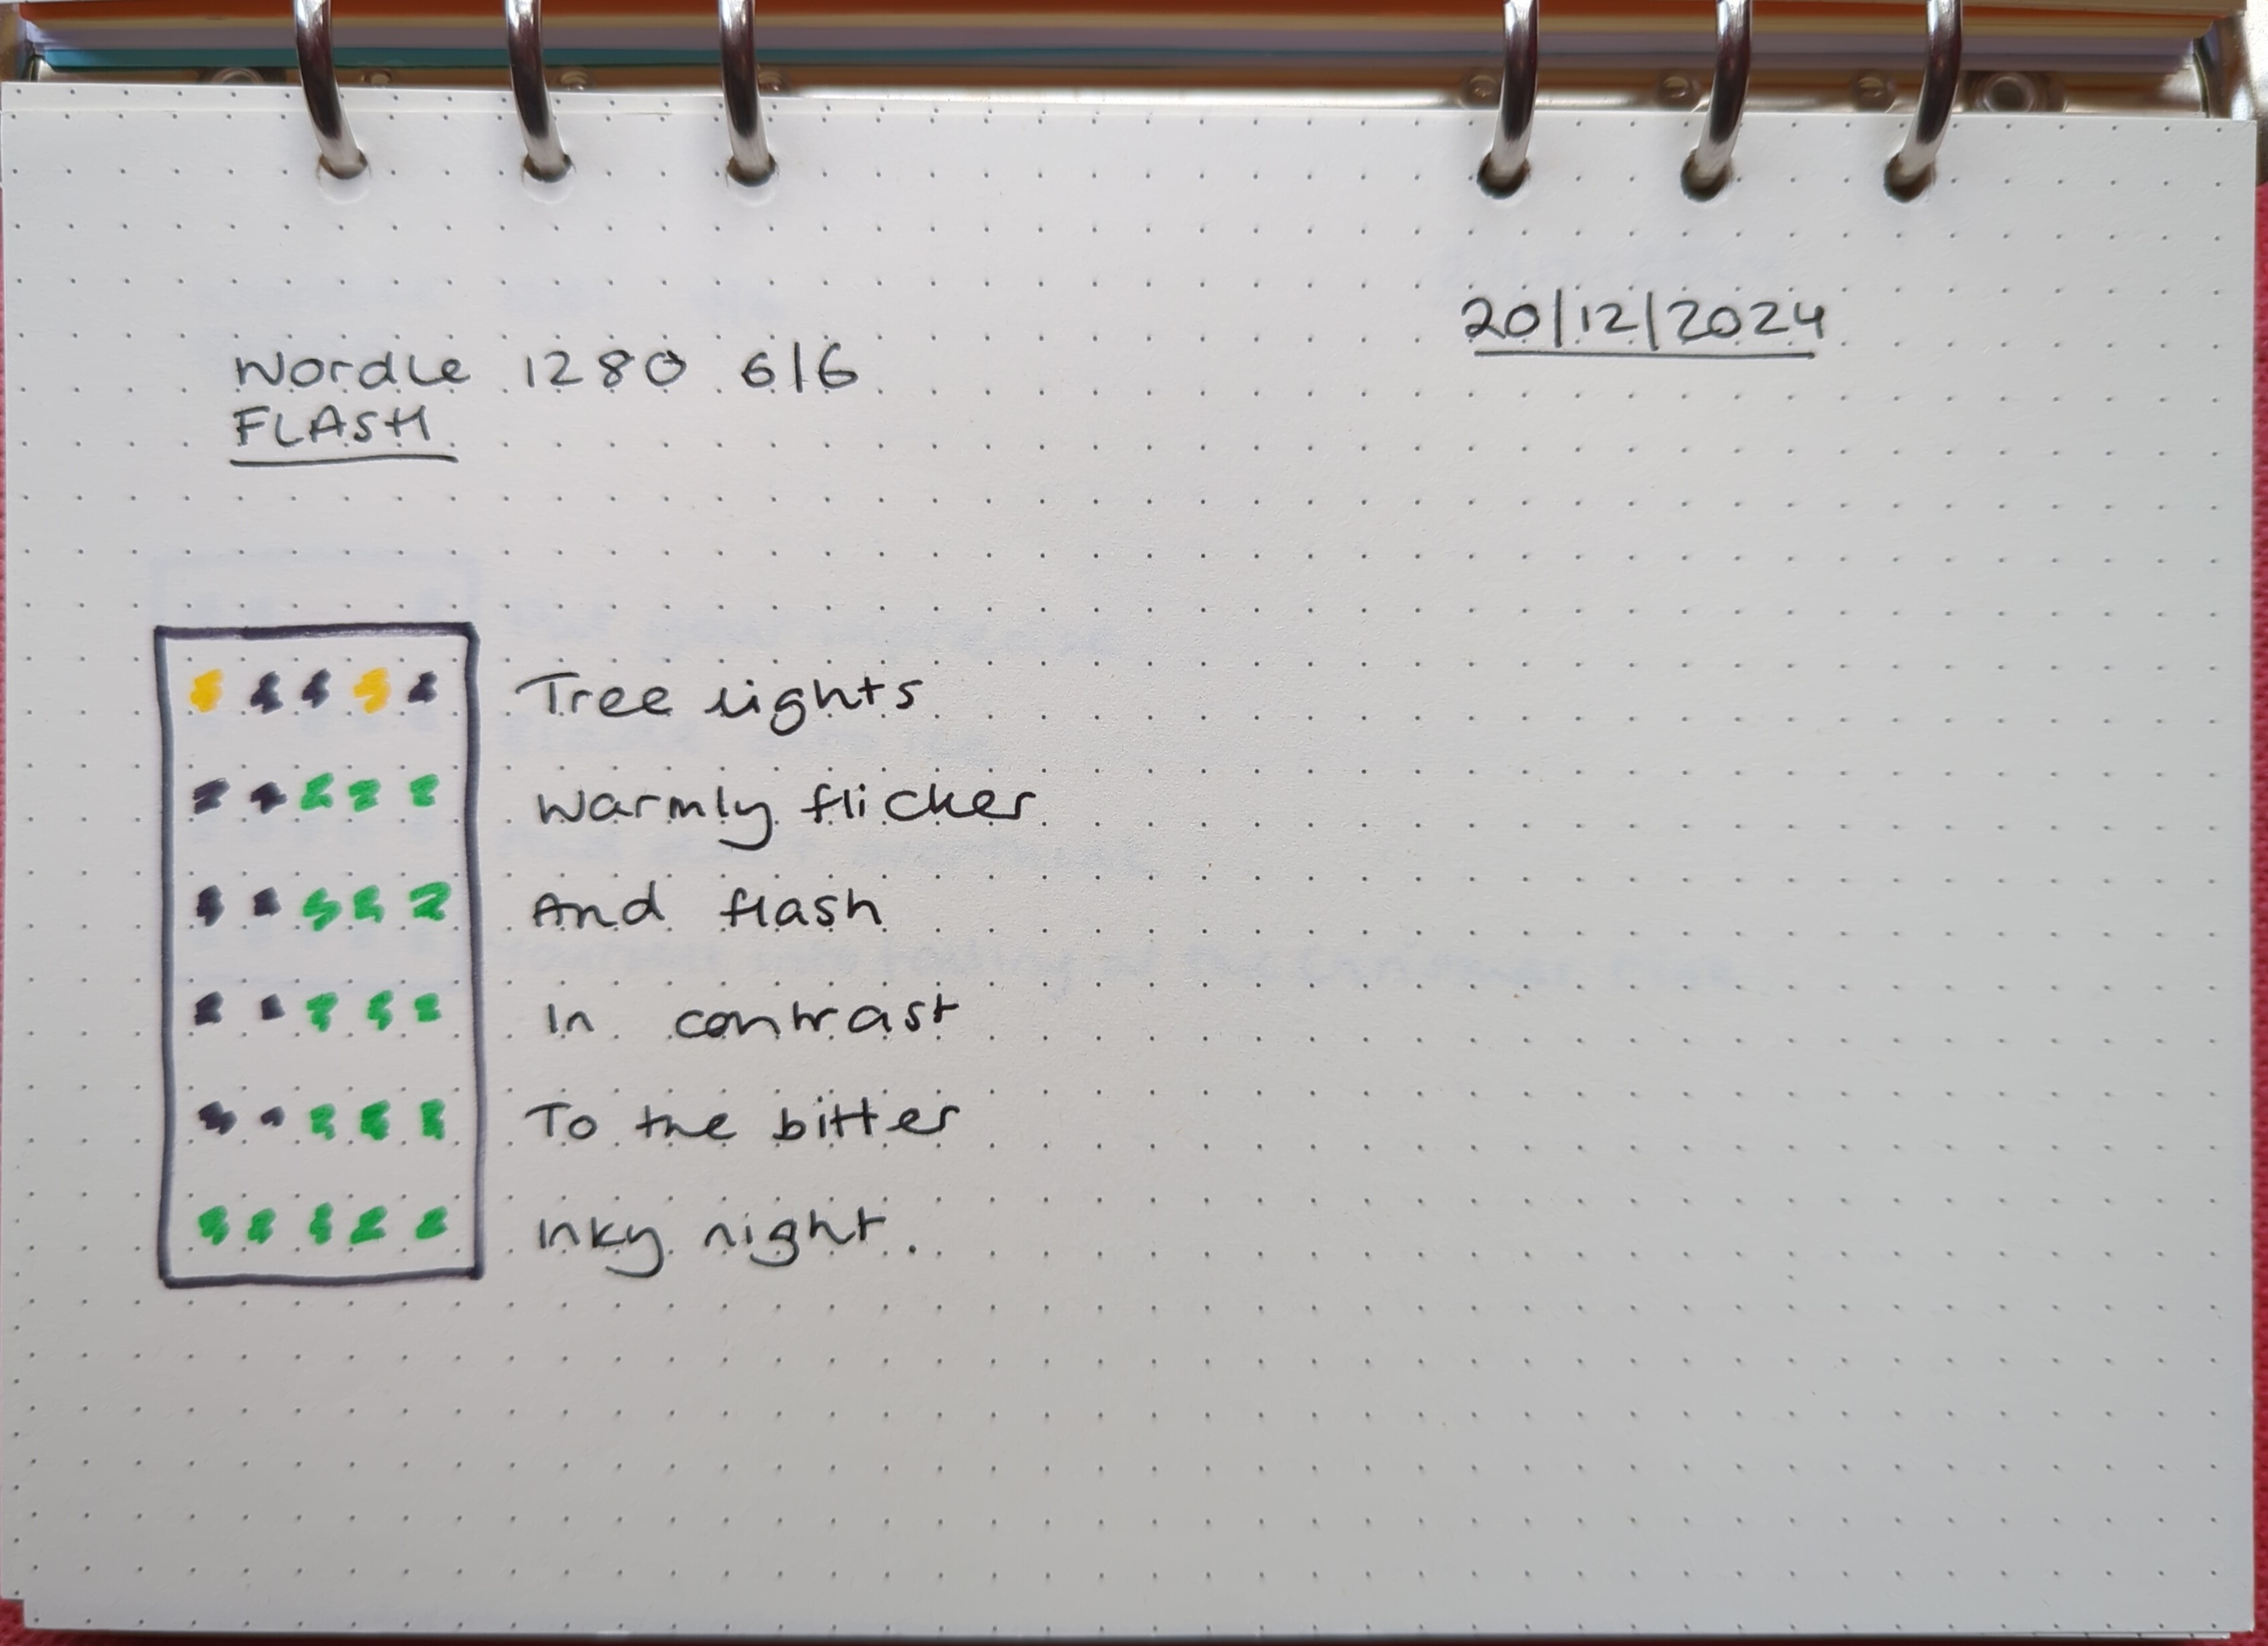 20/12/2024
Wordle 1280 6/6
FLASH
Tree lights
Warmly flicker
And flash
In contrast
To the bitter
Inky night.